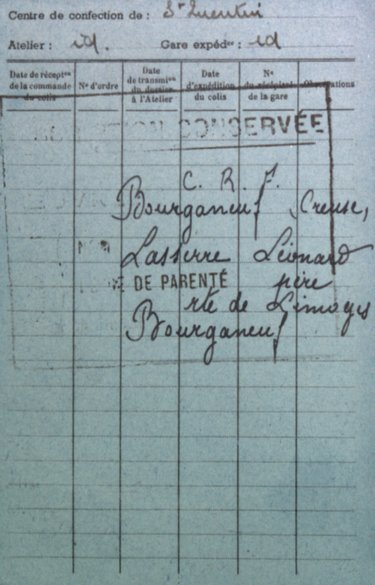 Centre de confection de : St Quentin
Atelier : id. Gare expédre : id
Date de récepton de la commande du colis
N° d'ordre
Date de transmion du dossier à l'Atelier
Date d'expédition du colis
N° du récépissé de la gare
Observations
CONSERVÉE
C. R. F.
Bourganeuf Creuse,
Lasserre Léonard
DE PARENTÉ père
rte de Limoges
Bourganeuf